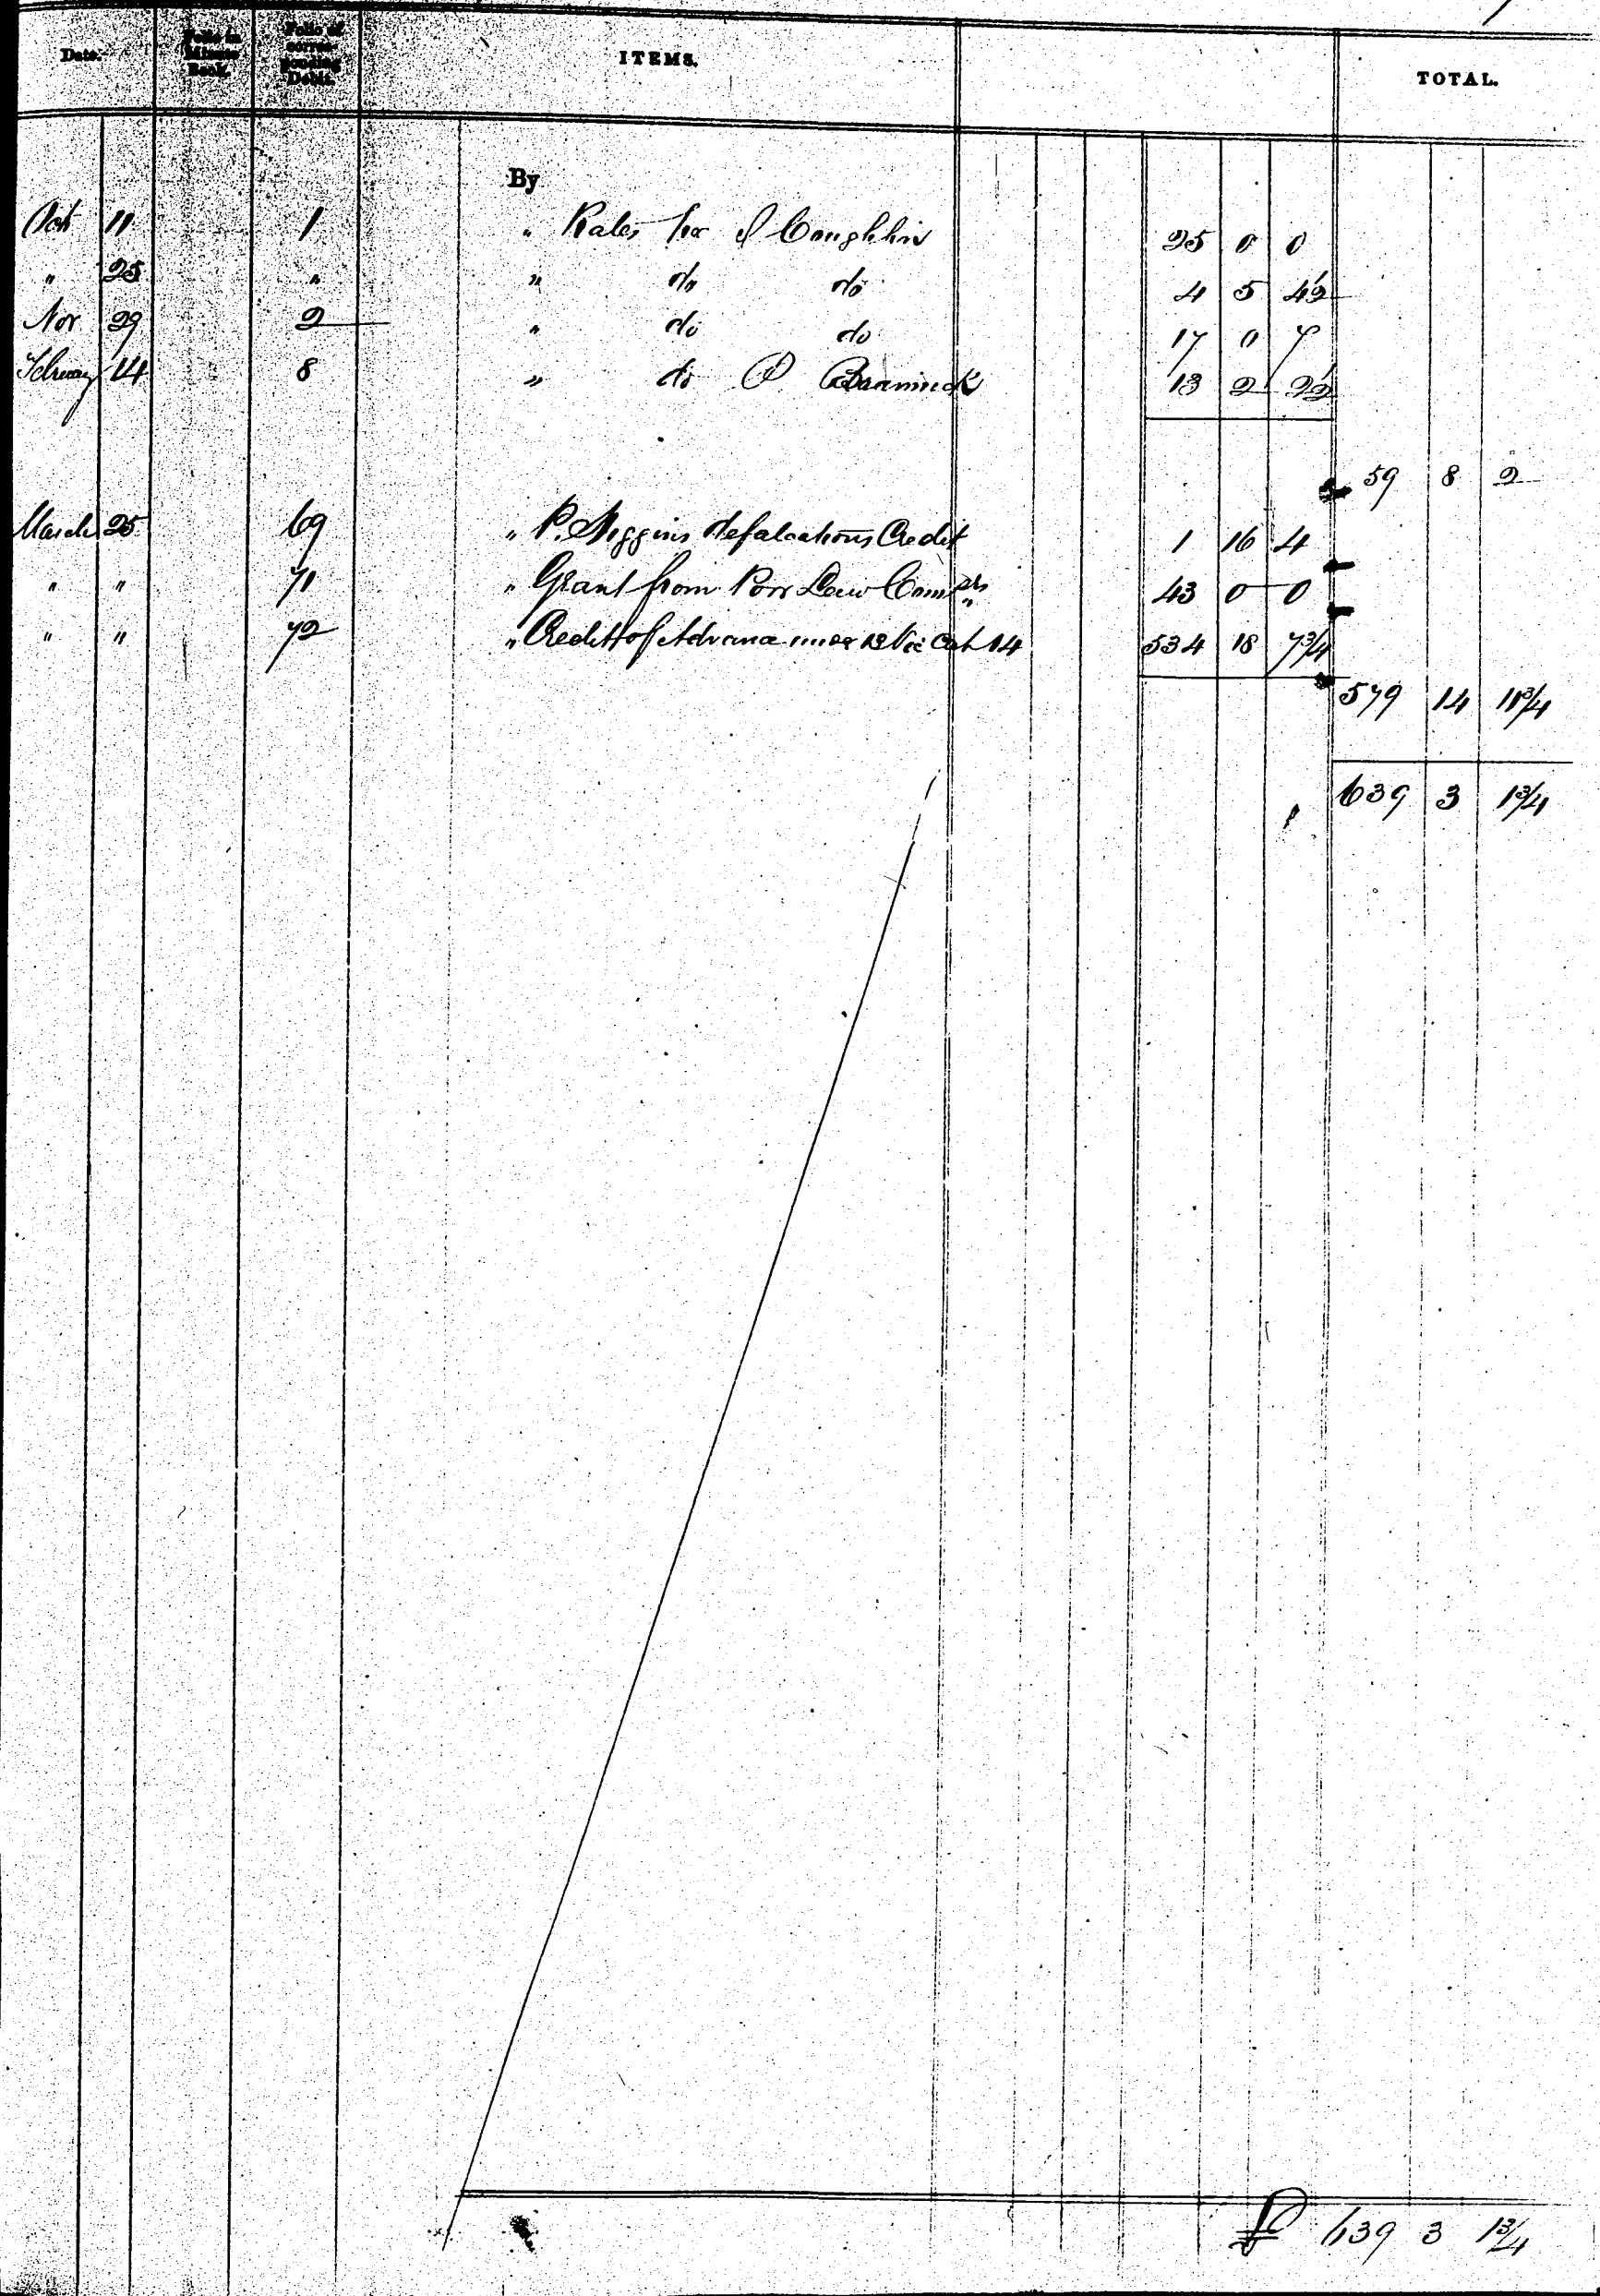 Date. Folio in Minute Book. Folio of corres- ponding Debit. ITEMS. TOTAL.
By
Oct 11 1 " Rates per J Coughlin 25 0 0
" 25 " " do do 4 5 4½
Nov 29 2 " do do 17 0 7
February 14 8 " do P 13 2 2½
59 8 2
March 25 69 " P. Higgins defalcations Credit 1 16 4
" " 71 " Grant from Poor Law Comrs 43 0 0
" " 72 " Credit of Advance under 12 Vic Cap 14 534 18 7¾
579 14 11¾
639 3 1¾
£ 639 3 1¾